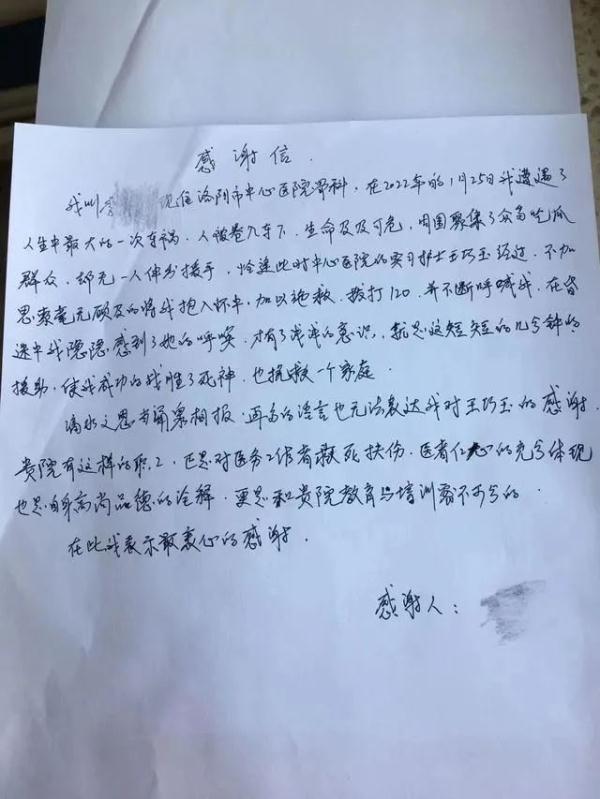 感谢信.
我叫 现住洛阳市中心医院骨科，在2022年的1月25日我遭遇了
人生中最大的一次车祸，人被卷入车下，生命及及可危，周围聚集了众多吃瓜
群众，却无一人伸出援手，恰逢此时中心医院的实习护士王巧玉经过，不加
思索毫无顾及的将我抱入怀中，加以施救，拨打120，并不断呼喊我，在昏
迷中我隐隐感到了她的呼唤，才有了浅浅的意识，就是这短短的几分钟的
援助，使我成功的战胜了死神，也拯救一个家庭.
滴水之恩当涌泉相报，再多的语言也无法表达我对王巧玉的感谢
贵院有这样的职工，正是对医务工作者救死扶伤，医者仁心的充分体现
也是自身高尚品德的诠释，更是和贵院教育与培训密不可分的.
在此我表示最衷心的感谢.
感谢人：